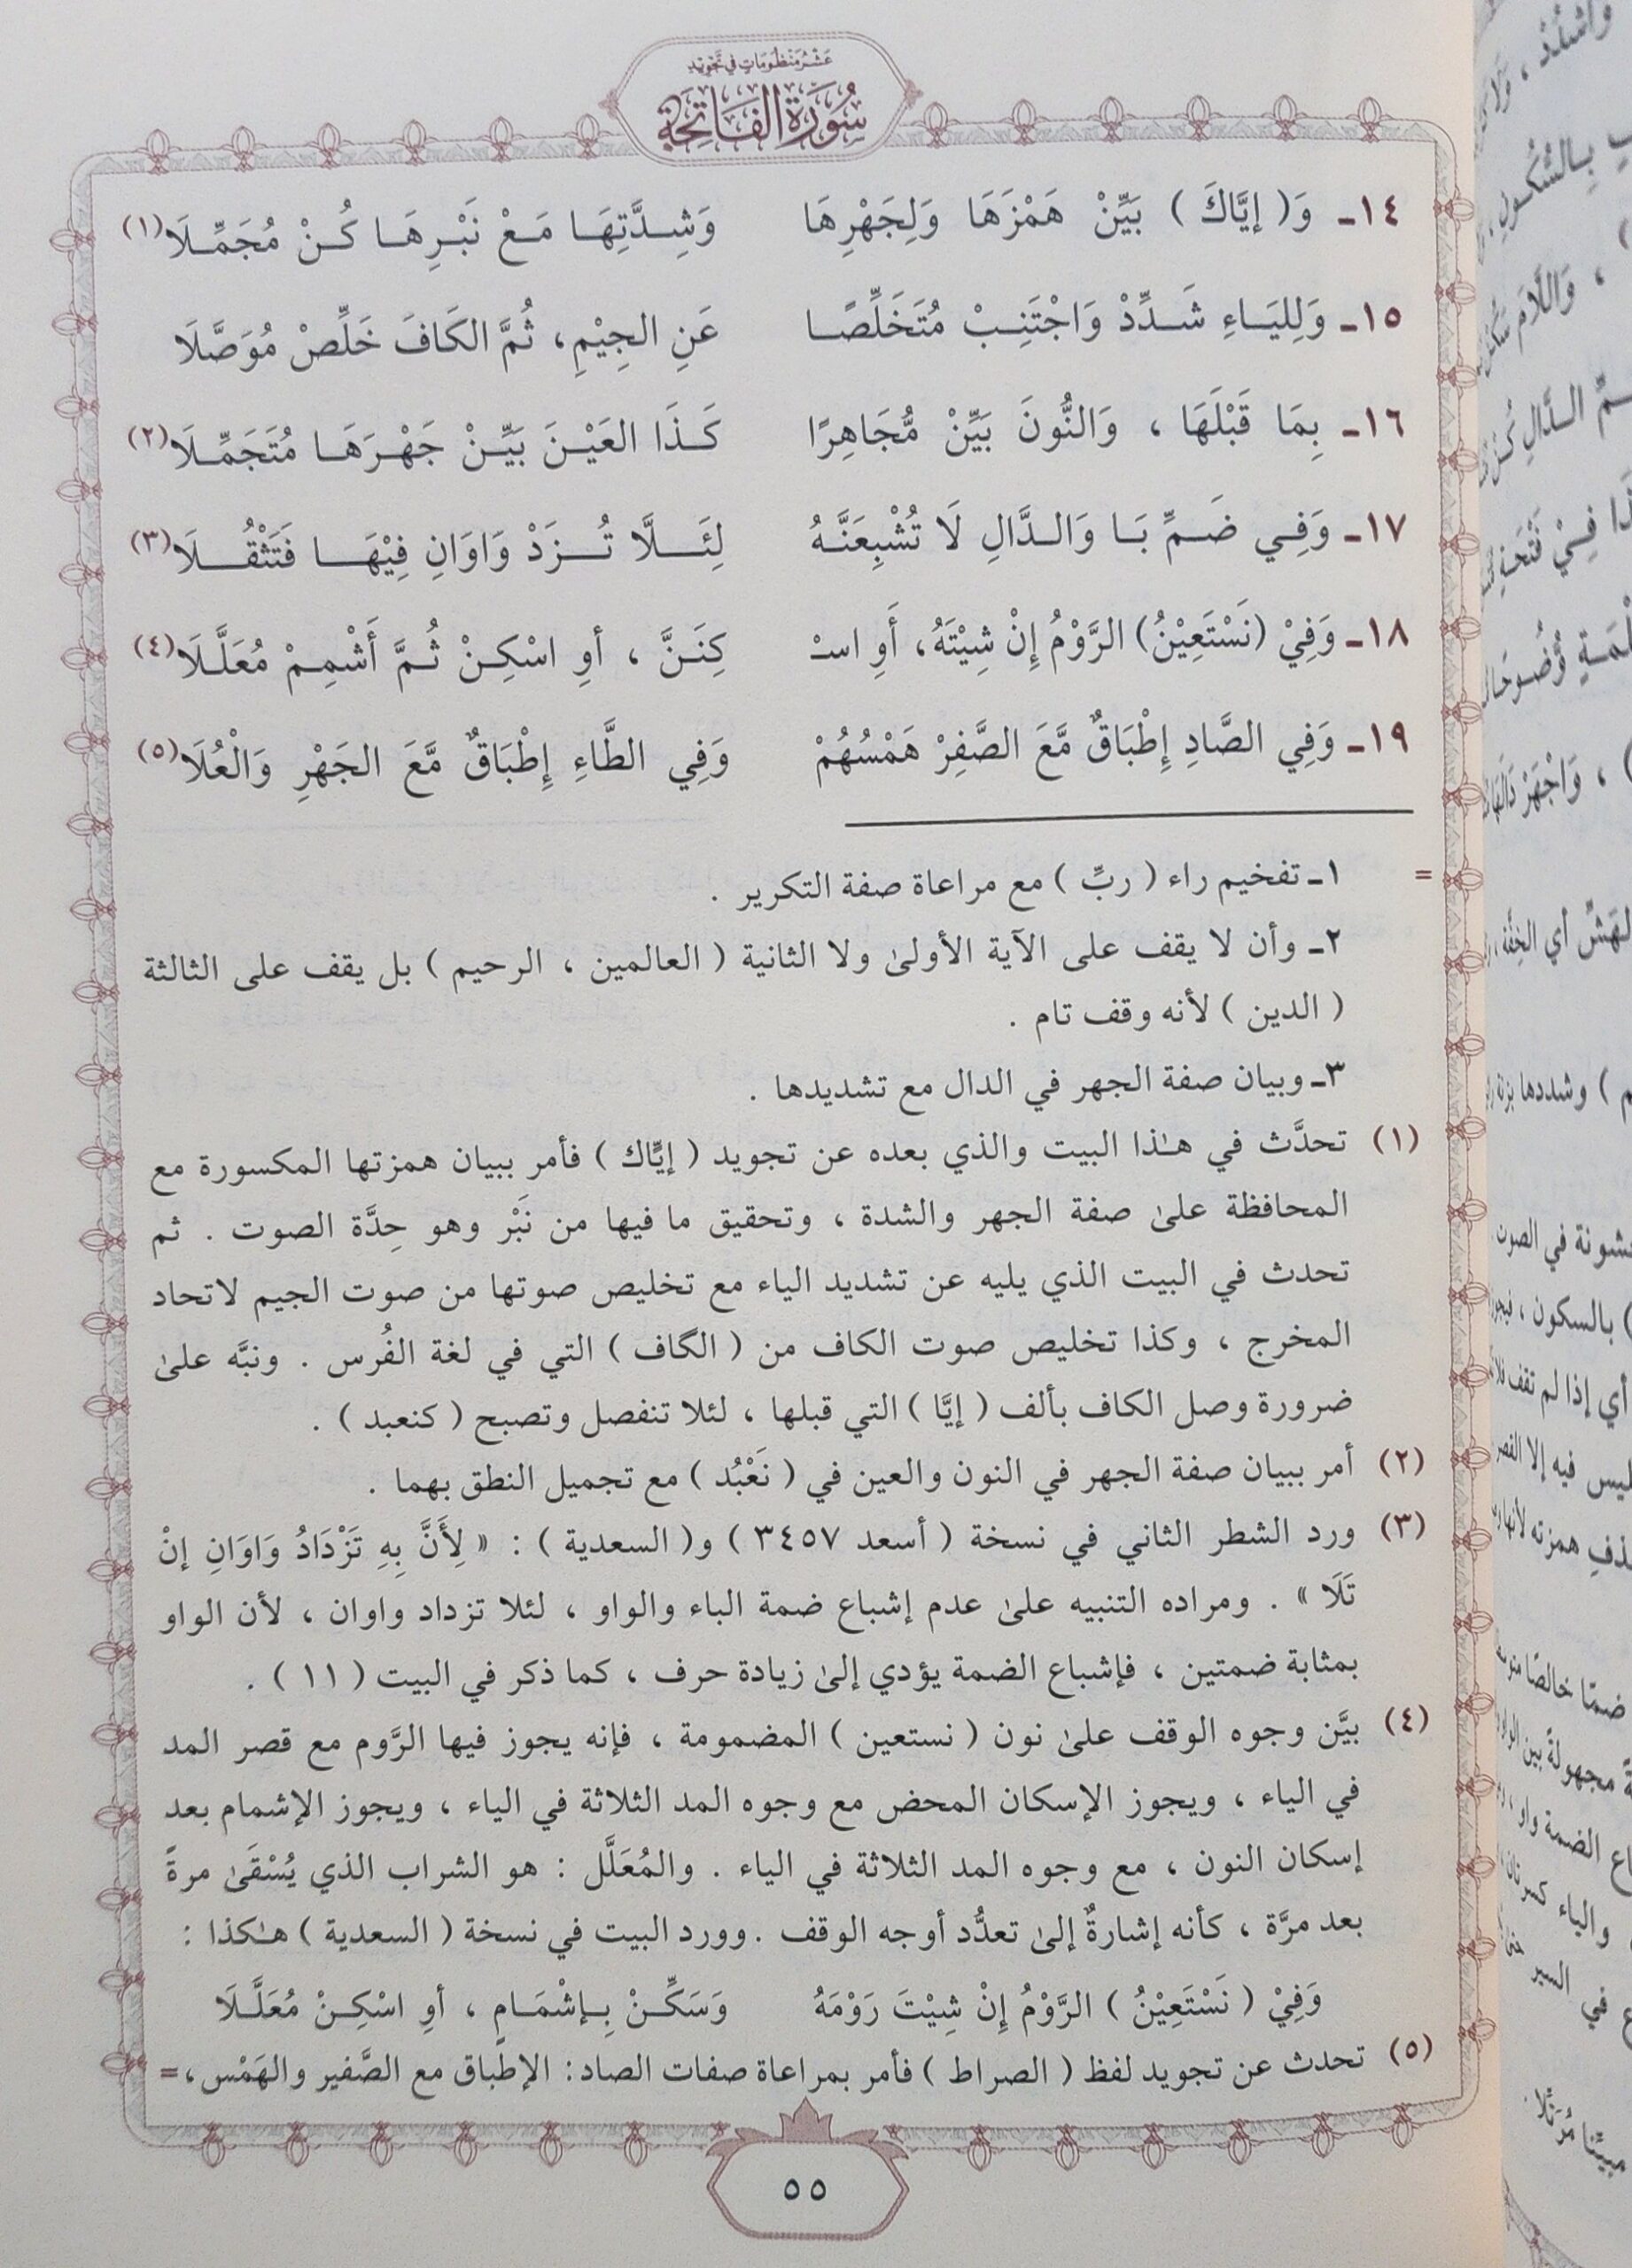 عَشْرُ مَنْظُومَاتٍ فِي تَجْوِيدِ
سُورَةِ الفَاتِحَةِ
١٤ـ وَ( إيَّاكَ ) بَيِّنْ هَمْزَهَا وَلِجَهْرِهَا وَشِدَّتِهَا مَعْ نَبْرِهَا كُنْ مُجَمِّلَا(١)
١٥ـ وَلِليَاءِ شَدِّدْ وَاجْتَنِبْ مُتَخَلِّصًا عَنِ الجِيْمِ، ثُمَّ الكَافَ خَلِّصْ مُوَصَّلَا
١٦ـ بِمَا قَبْلَهَا ، وَالنُّونَ بَيِّنْ مُّجَاهِرًا كَذَا العَيْنَ بَيِّنْ جَهْرَهَا مُتَجَمِّلَا(٢)
١٧ـ وَفِي ضَمِّ بَا وَالدَّالِ لَا تُشْبِعَنَّهُ لِئَلَّا تُزَدْ وَاوَانِ فِيْهَا فَتَثْقُلَا(٣)
١٨ـ وَفِيْ (نَسْتَعِيْنُ) الرَّوْمُ إِنْ شِيْتَهُ، أَوِ اسْـ كِنَنَّ ، أوِ اسْكِنْ ثُمَّ أَشْمِمْ مُعَلَّلَا(٤)
١٩ـ وَفِي الصَّادِ إِطْبَاقٌ مَّعَ الصَّفِرْ هَمْسُهُمْ وَفِي الطَّاءِ إِطْبَاقٌ مَّعَ الجَهْرِ وَالْعُلَا(٥)
= ١ـ تفخيم راء ( ربِّ ) مع مراعاة صفة التكرير .
٢ـ وأن لا يقف على الآية الأولىٰ ولا الثانية ( العالمين ، الرحيم ) بل يقف على الثالثة
( الدين ) لأنه وقف تام .
٣ـ وبيان صفة الجهر في الدال مع تشديدها .
(١) تحدَّث في هـٰذا البيت والذي بعده عن تجويد ( إيَّاك ) فأمر ببيان همزتها المكسورة مع
المحافظة علىٰ صفة الجهر والشدة ، وتحقيق ما فيها من نَبْر وهو حِدَّة الصوت . ثم
تحدث في البيت الذي يليه عن تشديد الياء مع تخليص صوتها من صوت الجيم لاتحاد
المخرج ، وكذا تخليص صوت الكاف من ( الگاف ) التي في لغة الفُرس . ونبَّه علىٰ
ضرورة وصل الكاف بألف ( إيَّا ) التي قبلها ، لئلا تنفصل وتصبح ( كنعبد ) .
(٢) أمر ببيان صفة الجهر في النون والعين في ( نَعْبُد ) مع تجميل النطق بهما .
(٣) ورد الشطر الثاني في نسخة ( أسعد ٣٤٥٧ ) و( السعدية ) : « لِأَنَّ بِهِ تَزْدَادُ وَاوَانِ إنْ
تَلَا » . ومراده التنبيه علىٰ عدم إشباع ضمة الباء والواو ، لئلا تزداد واوان ، لأن الواو
بمثابة ضمتين ، فإشباع الضمة يؤدي إلىٰ زيادة حرف ، كما ذكر في البيت ( ١١ ) .
(٤) بيَّن وجوه الوقف علىٰ نون ( نستعين ) المضمومة ، فإنه يجوز فيها الرَّوم مع قصر المد
في الياء ، ويجوز الإسكان المحض مع وجوه المد الثلاثة في الياء ، ويجوز الإشمام بعد
إسكان النون ، مع وجوه المد الثلاثة في الياء . والمُعَلَّل : هو الشراب الذي يُسْقَىٰ مرةً
بعد مرَّة ، كأنه إشارةٌ إلىٰ تعدُّد أوجه الوقف . وورد البيت في نسخة ( السعدية ) هـٰكذا :
وَفِيْ ( نَسْتَعِيْنُ ) الرَّوْمُ إِنْ شِيْتَ رَوْمَهُ وَسَكِّنْ بِإشْمَامٍ ، أوِ اسْكِنْ مُعَلَّلَا
(٥) تحدث عن تجويد لفظ ( الصراط ) فأمر بمراعاة صفات الصاد: الإطباق مع الصَّفير والهَمْس، =
٥٥